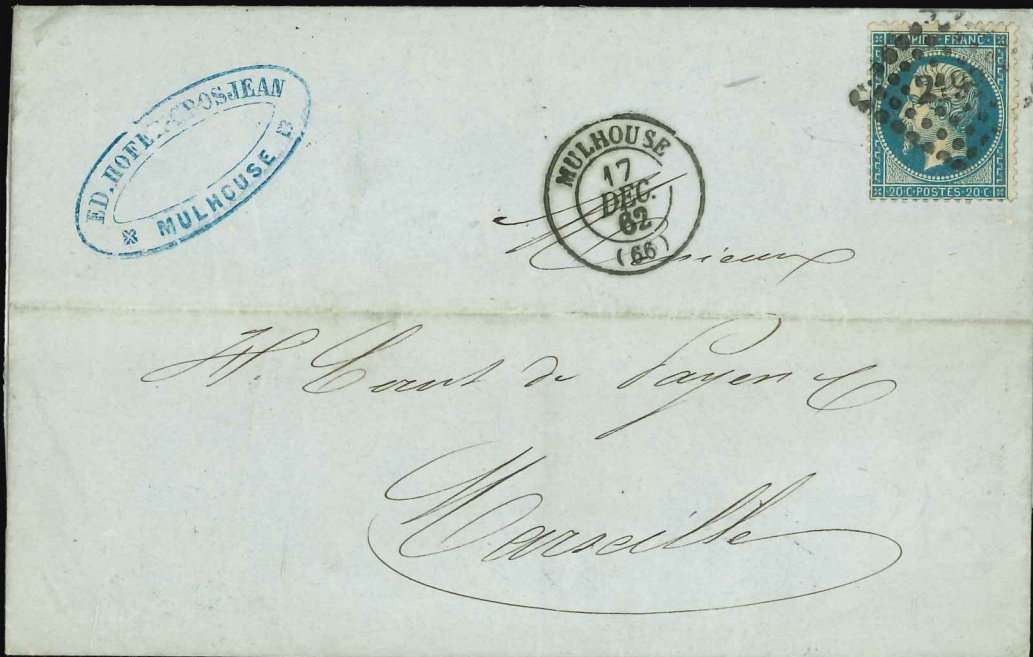 ED. HOFER-GROSJEAN
MULHOUSE
MULHOUSE
17
DEC.
62
(66)
EMPIRE FRANC
20 C - POSTES - 20 C
Messieurs
H. de Payen &
Marseille